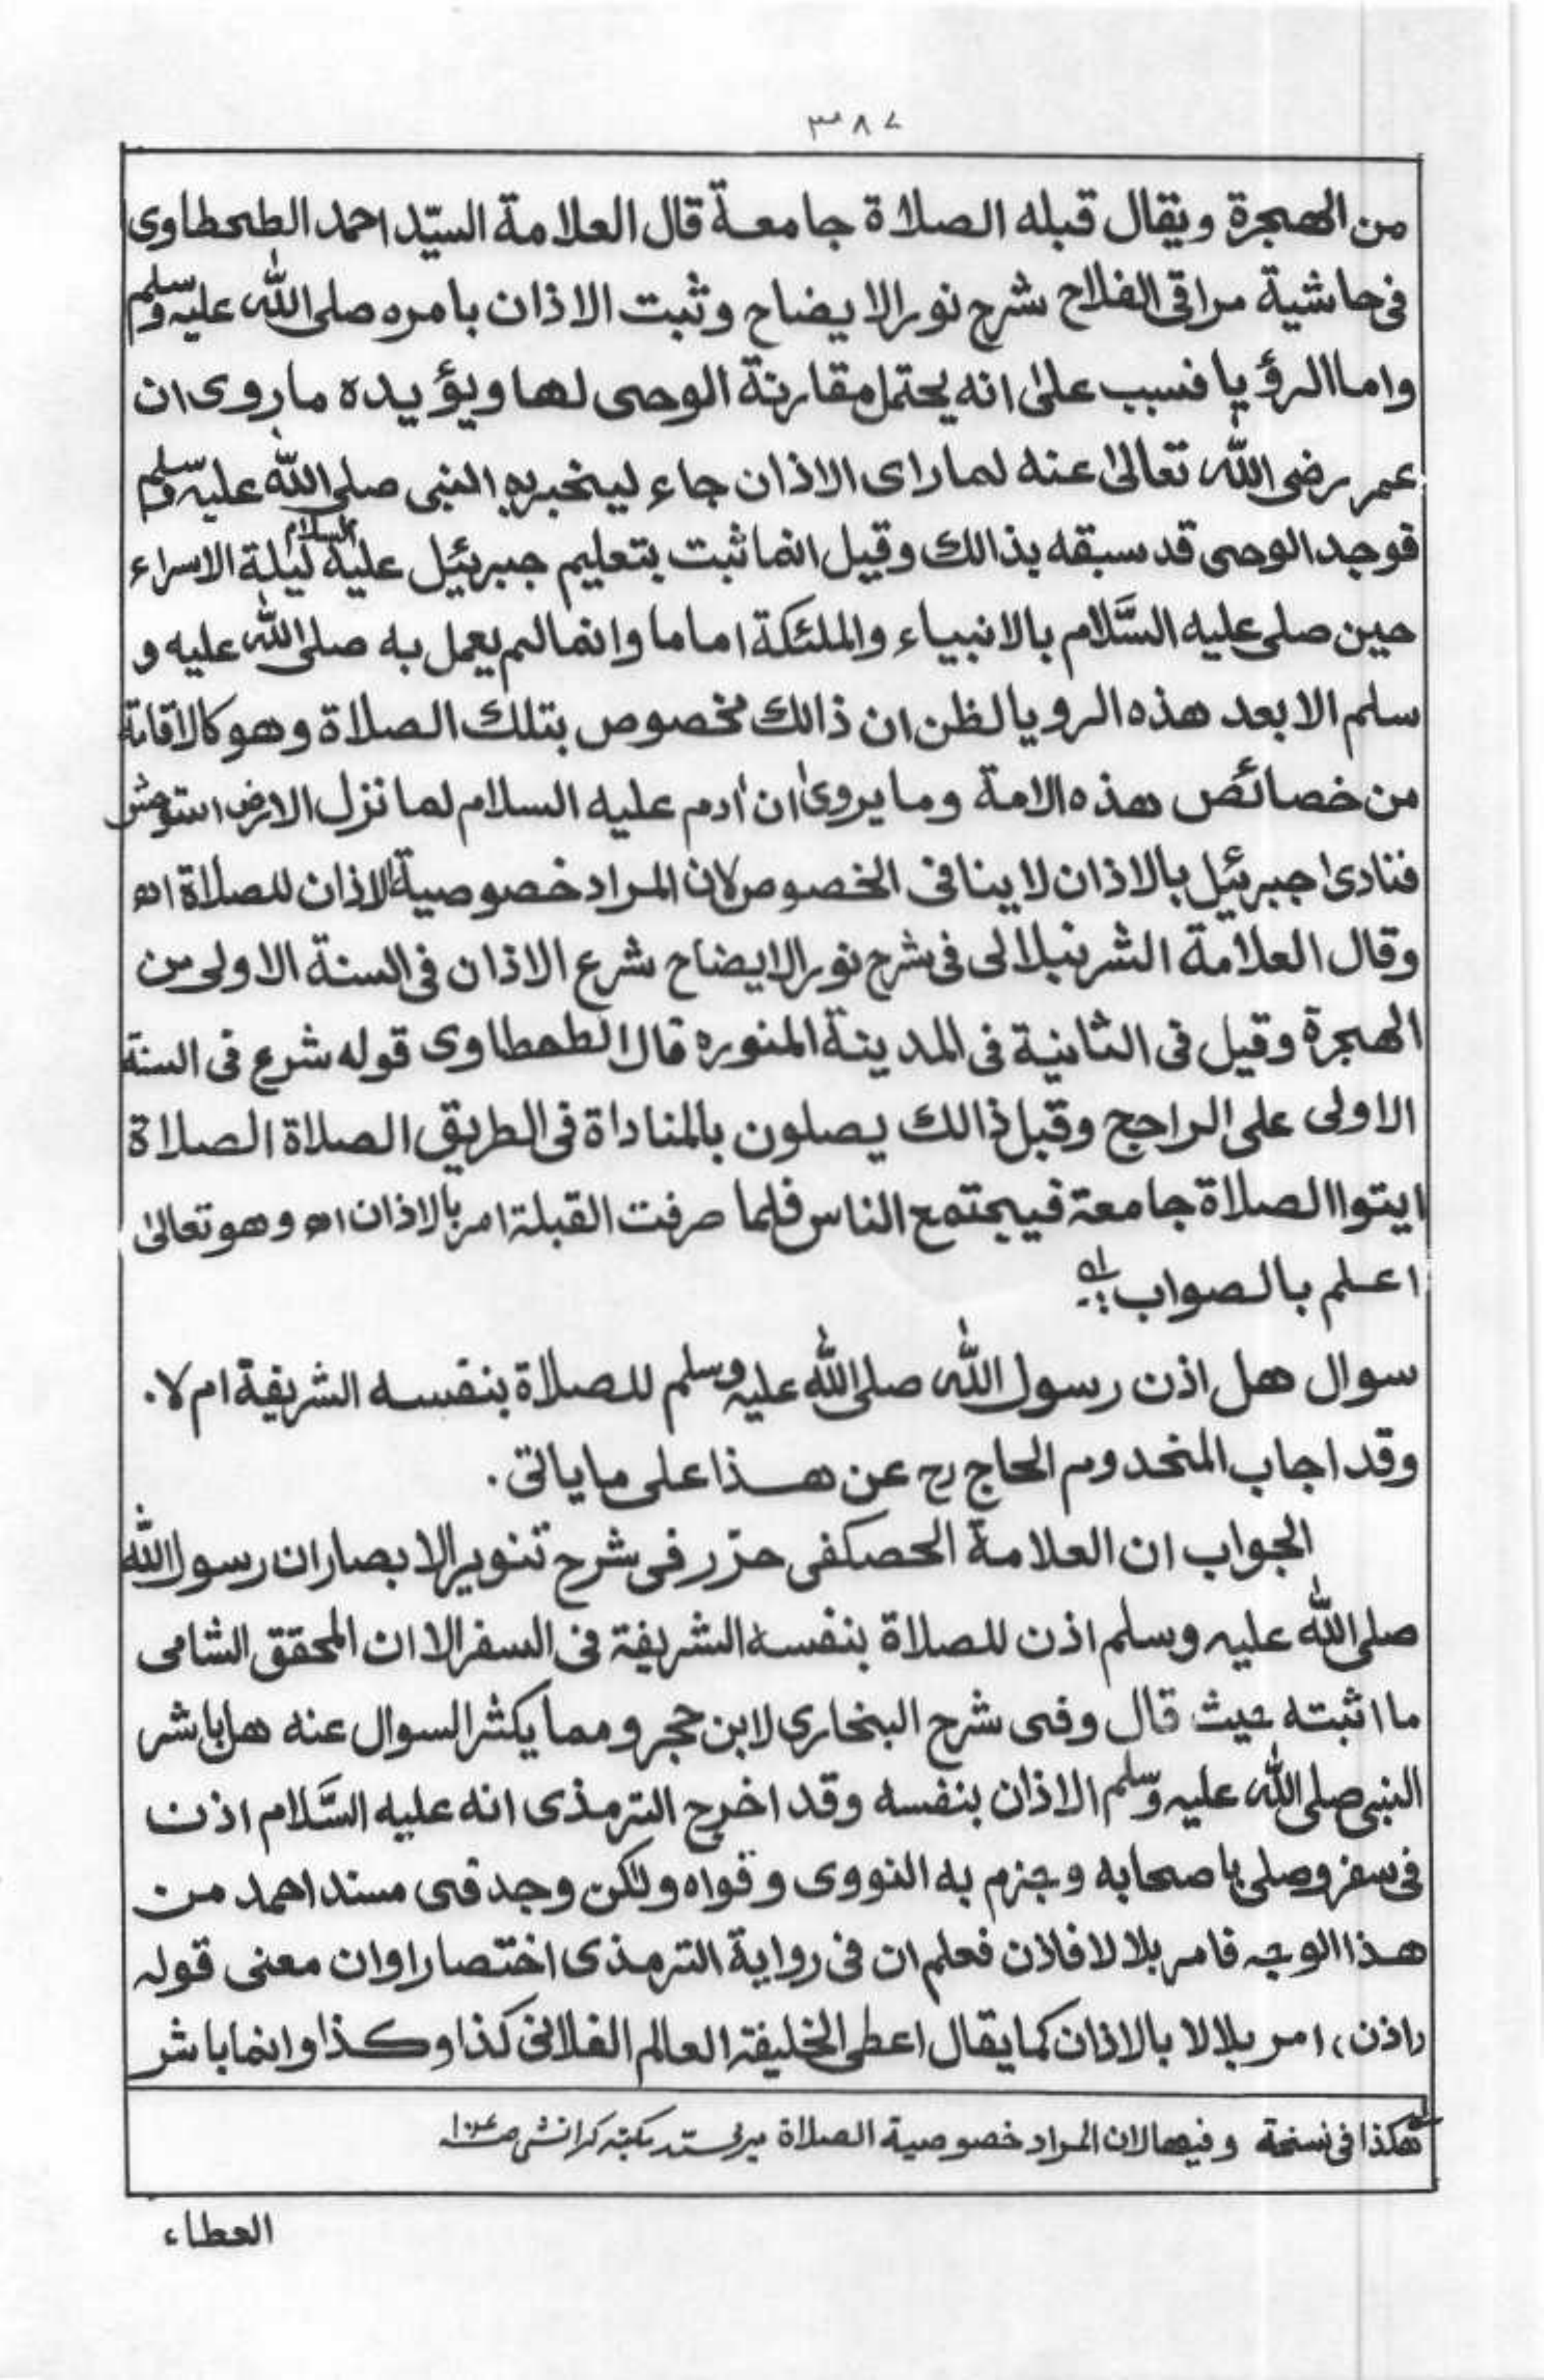 ٣٨٧
من الهجرة ويقال قبله الصلاة جامعة قال العلامة السيّد احمد الطحطاوى
فى حاشية مراقى الفلاح شرح نور الايضاح وثبت الاذان بامره صلى الله عليه وسلم
واما الرؤيا فسبب على انه يحتمل مقارنة الوحى لها ويؤيده ماروى ان
عمر رضى الله تعالىٰ عنه لما راى الاذان جاء ليخبر به النبى صلى الله عليه وسلم
فوجد الوحى قد سبقه بذالك وقيل انما ثبت بتعليم جبرئيل عليه السلام ليلة الاسراء
حين صلى عليه السَّلام بالانبياء والملئكة اماما وانما لم يعمل به صلى الله عليه و
سلم الا بعد هذه الرويا لظن ان ذالك مخصوص بتلك الصلاة وهو كالاقامة
من خصائص هذه الامة وما يروىٰ ان اٰدم عليه السلام لما نزل الارض استوحش
فنادىٰ جبرئيل بالاذان لا ينافى الخصوص لان المراد خصوصية الاذان للصلاة اه
وقال العلامة الشرنبلالى فى شرح نور الايضاح شرع الاذان فى السنة الاولى من
الهجرة وقيل فى الثانية فى المدينة المنوره قال الطحطاوى قوله شرع فى السنة
الاولى على الراجح وقبل ذالك يصلون بالمناداة فى الطريق الصلاة الصلاة
ايتوا الصلاة جامعة فيجتمع الناس فلما صرفت القبلة امر بالاذان اه وهو تعالىٰ
اعلم بالصواب
سوال هل اذن رسول الله صلى الله عليه وسلم للصلاة بنفسه الشريفة ام لا.
وقد اجاب المخدوم الحاج رح عن هذا على ما ياتى.
الجواب ان العلامة الحصكفى حرّر فى شرح تنوير الابصار ان رسول الله
صلى الله عليه وسلم اذن للصلاة بنفسه الشريفة فى السفر الا ان المحقق الشامى
ما اثبته حيث قال وفى شرح البخارى لابن حجر ومما يكثر السوال عنه هل باشر
النبى صلى الله عليه وسلم الاذان بنفسه وقد اخرج الترمذى انه عليه السَّلام اذن
فى سفر وصلى باصحابه وجزم به النووى وقواه ولكن وجد فى مسند احمد من
هذا الوجه فامر بلالا فاذن فعلم ان فى رواية الترمذى اختصارا وان معنى قوله
(اذن) امر بلالا بالاذان كما يقال اعطى الخليفة العالم الفلانى كذا وكذا وانما باشر
هكذا فى نسخة وفيها لان المراد خصوصية الصلاة
العطاء